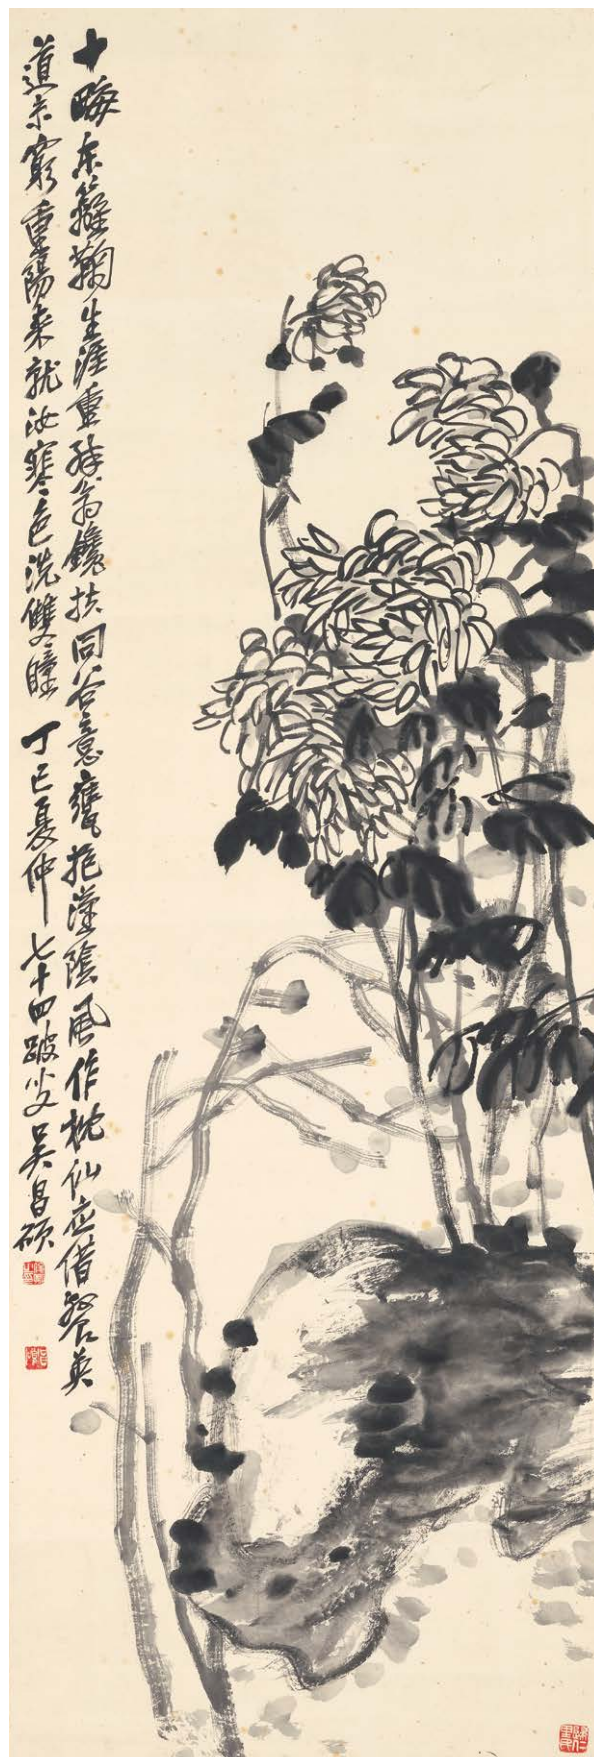 十畮東籬鞠生涯重翁鑱扶同谷意甕抱漢陰風作枕仙應借餐英
道未窮重陽來就汝寒色洗雙瞳 丁巳夏仲 七十四跛叟 吳昌碩